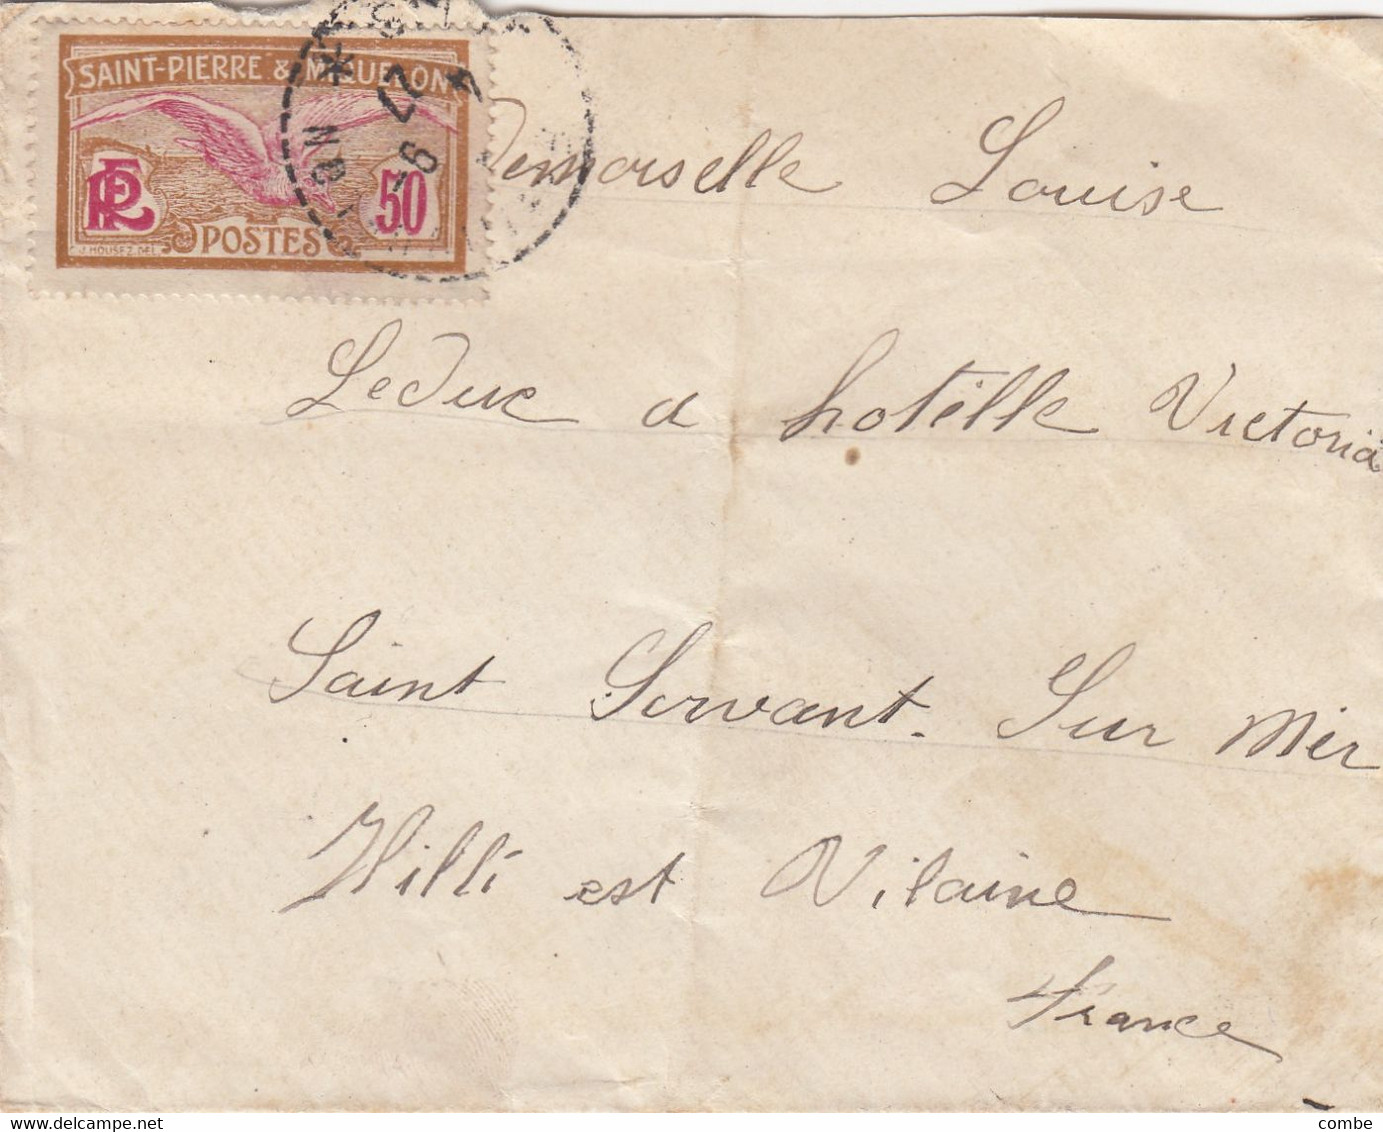 SAINT-PIERRE & MIQUELON
RF
50
POSTES
J. HOUSEZ DEL.
22
4
-6
Demoiselle Louise
Leduc a hotélle Victoria
Saint Servant. Sur Mér
Hilli est Vilaine
France
combe